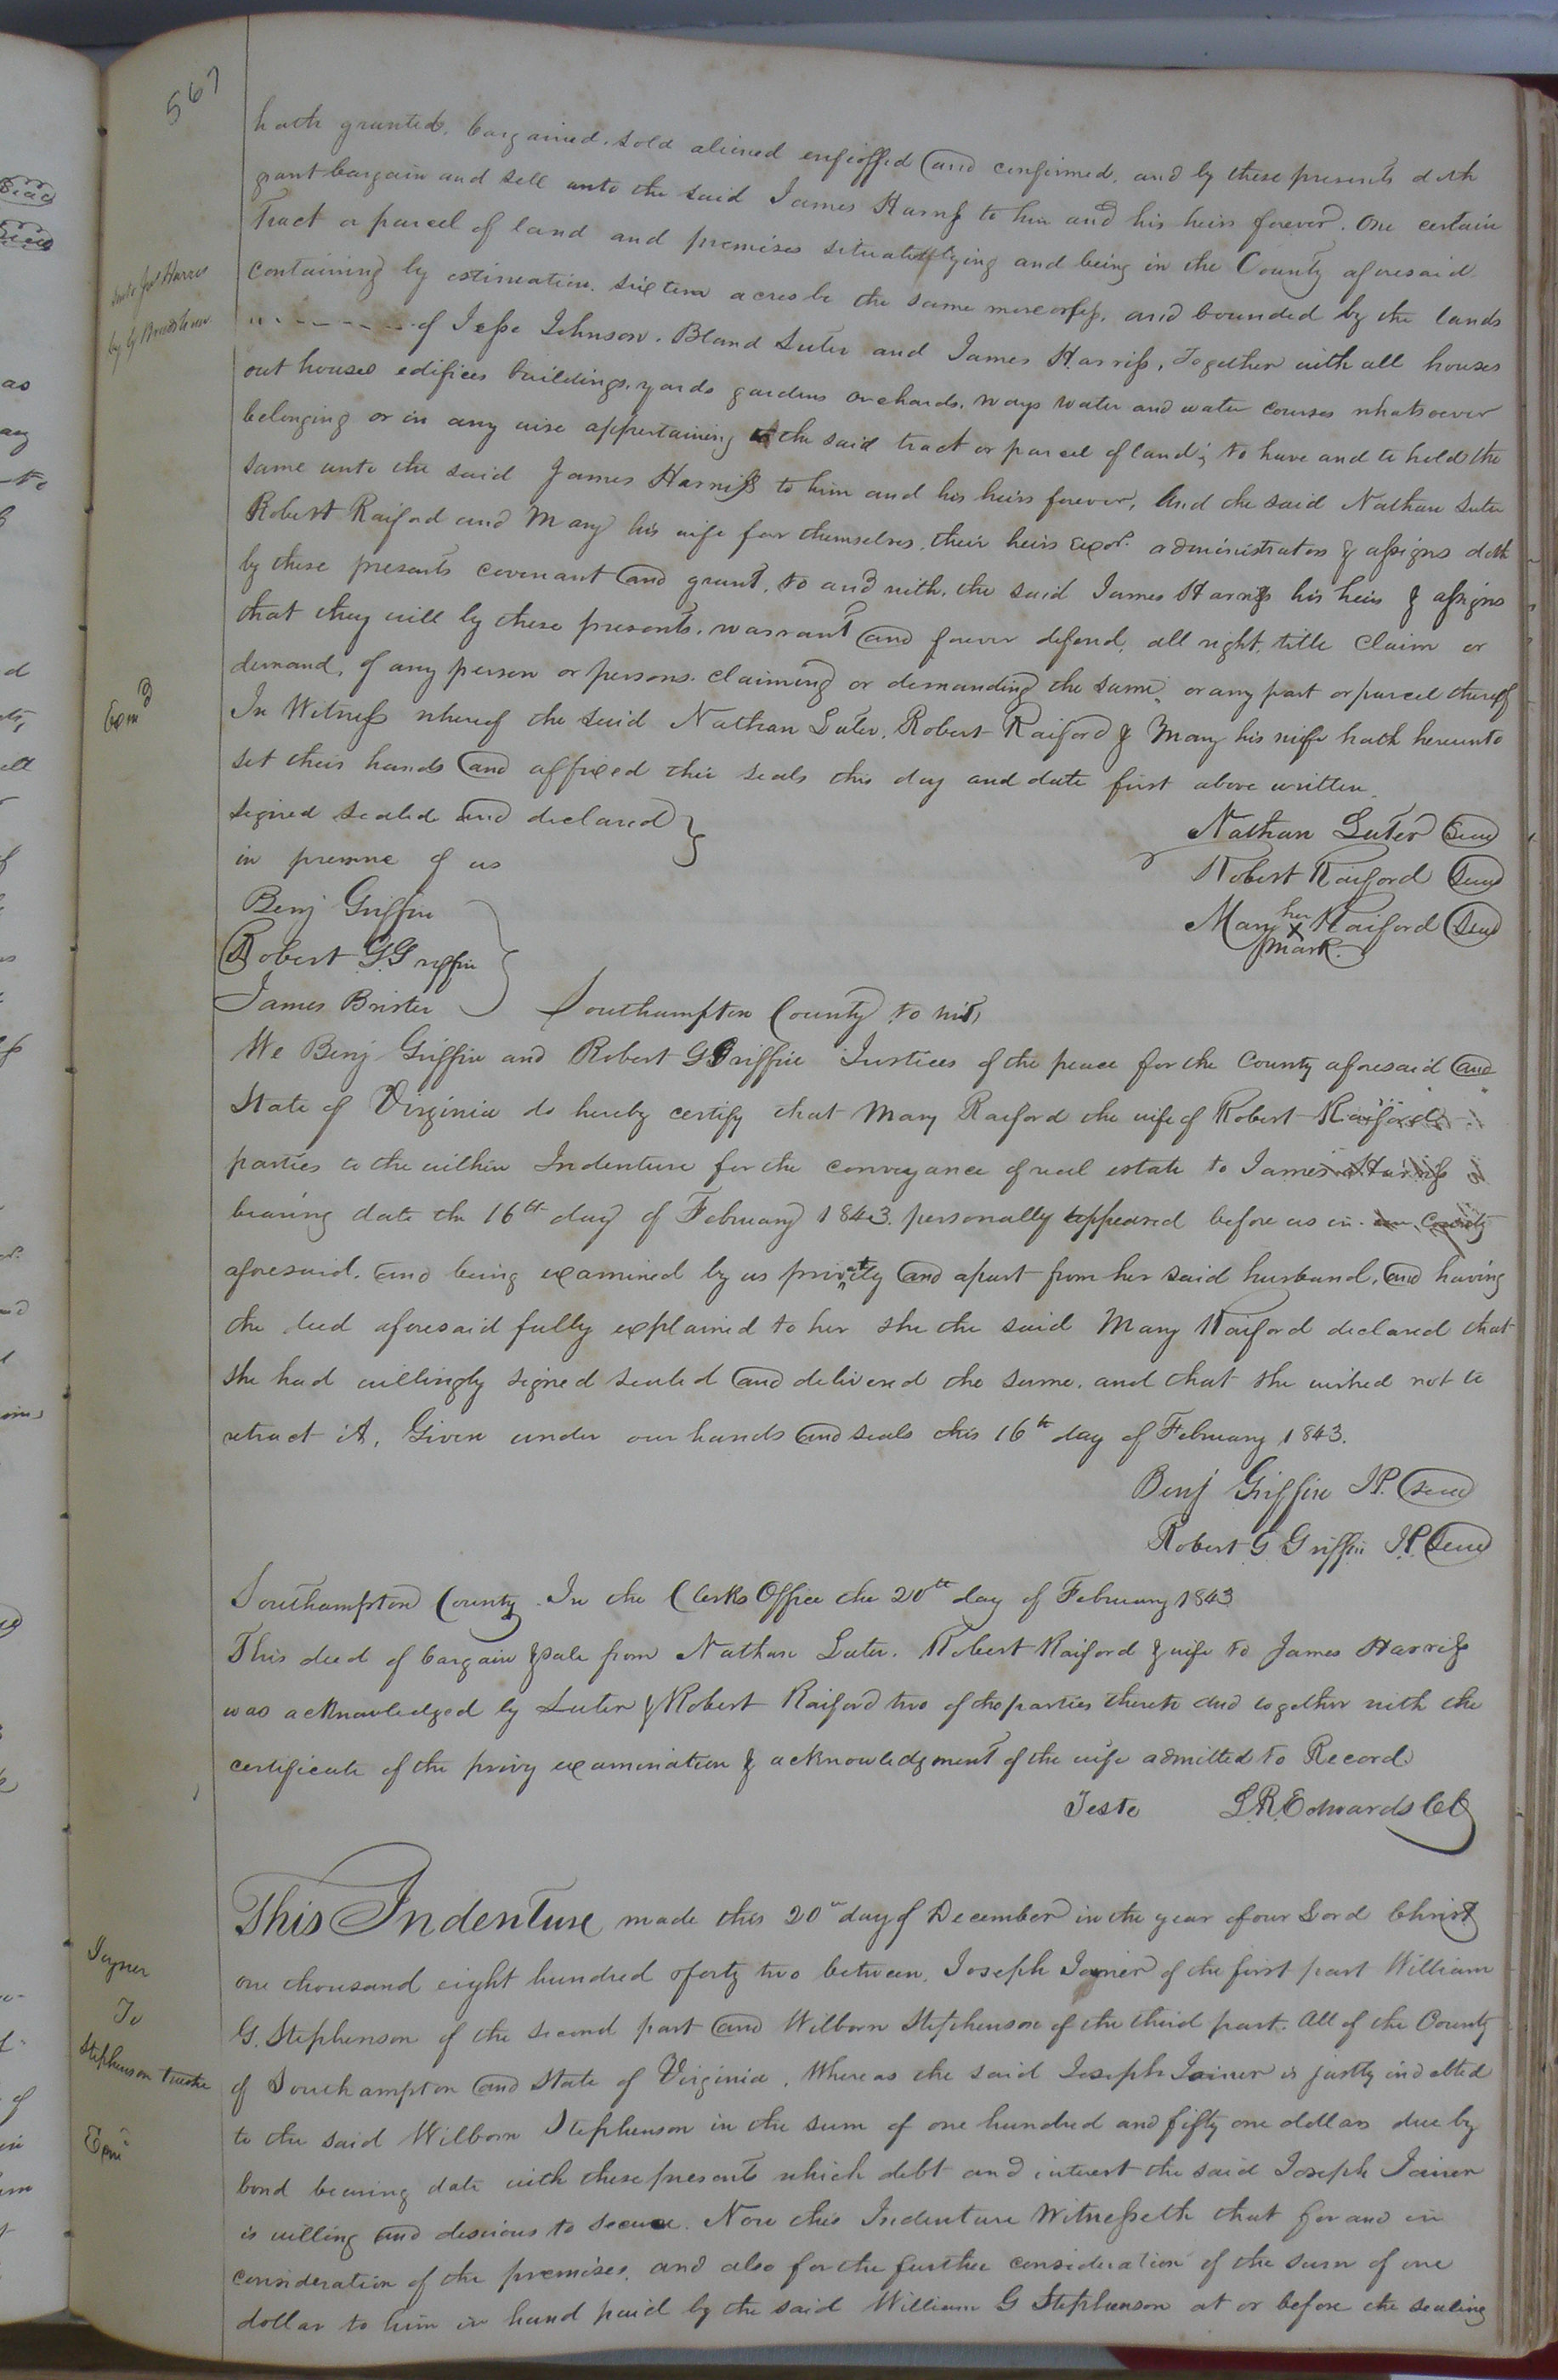 567
hath granted, bargained, sold aliened enfeoffed and confirmed, and by these presents doth
grant bargain and sell unto the said James Harriss to him and his heirs forever. One certain
Tract or parcel of land and premises situate lying and being in the County aforesaid
containing by estimation. sixteen acres be the same more or less, and bounded by the lands
of Jesse Johnson. Bland Luter and James Harriss, Together with all houses
out houses edifices buildings, yards gardens orchards, ways water and water courses whatsoever
belonging or in any wise appertaining to the said tract or parcel of land; to have and to hold the
same unto the said James Harriss to him and his heirs forever, And the said Nathan Luter
Robert Raiford and Mary his wife for themselves, their heirs exor. administrators & assigns doth
by these presents covenant and grant, to and with, the said James Harriss his heirs & assigns
that they will by these presents, warrant and forever defend, all right, title claim or
demand, of any person or persons claiming or demanding the same, or any part or parcel thereof
In Witness whereof the said Nathan Luter, Robert Raiford & Mary his wife hath hereunto
set their hands and affixed their seals this day and date first above written.
signed sealed and declared
in presence of us
Nathan Luter Seal
Robert Raiford Seal
Mary her X mark Raiford Seal
Benj Griffin
Robert G Griffin
James Brister
Southampton County to wit,
We Benj Griffin and Robert G Griffin Justices of the peace for the County aforesaid and
State of Virginia do hereby certify that Mary Raiford the wife of Robert Raiford
parties to the within Indenture for the conveyance of real estate to James Harriss
bearing date the 16th day of February 1843. personally appeared before us in our County
aforesaid. and being examined by us privately and apart from her said husband, and having
the deed aforesaid fully explained to her she the said Mary Raiford declared that
she had willingly signed sealed and delivered the same. and that she wished not to
retract it, Given under our hands and seals this 16th day of February 1843.
Benj Griffin JP. Seal
Robert G Griffin JP. Seal
Southampton County. In the Clerks Office the 20th day of February 1843
This deed of bargain & sale from Nathan Luter. Robert Raiford & wife to James Harriss
was acknowledged by Luter & Robert Raiford two of the parties thereto and together with the
certificate of the privy examination & acknowledgment of the wife admitted to Record
Teste L.R. Edwards Cl
Joyner
To
Stephenson trustee
Exmd
This Indenture made this 20th day of December in the year of our Lord Christ
one thousand eight hundred & forty two between, Joseph Joyner of the first part William
G. Stephenson of the second part and Wilborn Stephenson of the third part. All of the County
of Southampton and State of Virginia. Whereas the said Joseph Joiner is justly indebted
to the said Wilborn Stephenson in the sum of one hundred and fifty one dollars due by
bond bearing date with these presents which debt and interest the said Joseph Joiner
is willing and desirous to secure. Now this Indenture Witnesseth that for and in
consideration of the premises, and also for the further consideration of the sum of one
dollar to him in hand paid by the said William G Stephenson at or before the sealing